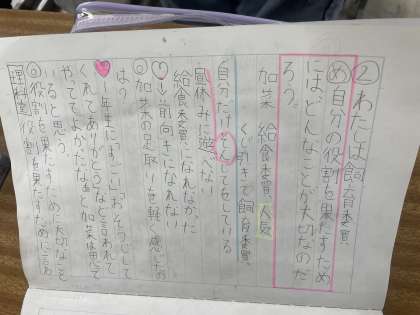 ② わたしは飼育委員
め 自分の役割を果たすため
には、どんなことが大切なのだ
ろう。
加菜 給食委員 人気
くじ引きで飼育委員
自分だけそんしをしている
昼休みに遊べない
給食委員になれなかった
→前向きになれない
加菜の足取りを軽く感じたの
は。
→一年生に
くれてありがとうなど言われて
やっててよかたなあと加菜は思
いると思う。
役割を果たすために大切なこと
理科室 役割を果たすために